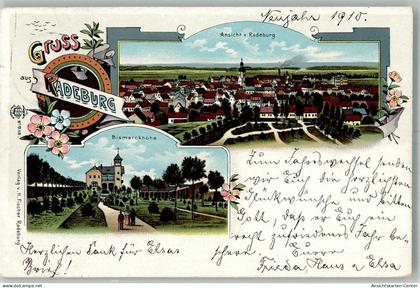 Neujahr 1910.
Ansicht v. Radeburg
Gruss
aus
Radeburg
Bismarckhöhe
Verlag v. H. Fischer Radeburg
Zum Jahreswechsel senden
wir Euch die herzlichsten
Glückwünsche und bitten
Gott, daß er Euch ein
recht zufriedenes Jahr be-
schere. Eure
Frieda, Hans u. Elsa
Herzlichen Dank für Elsas
Brief!
Ansichtskarten-Center